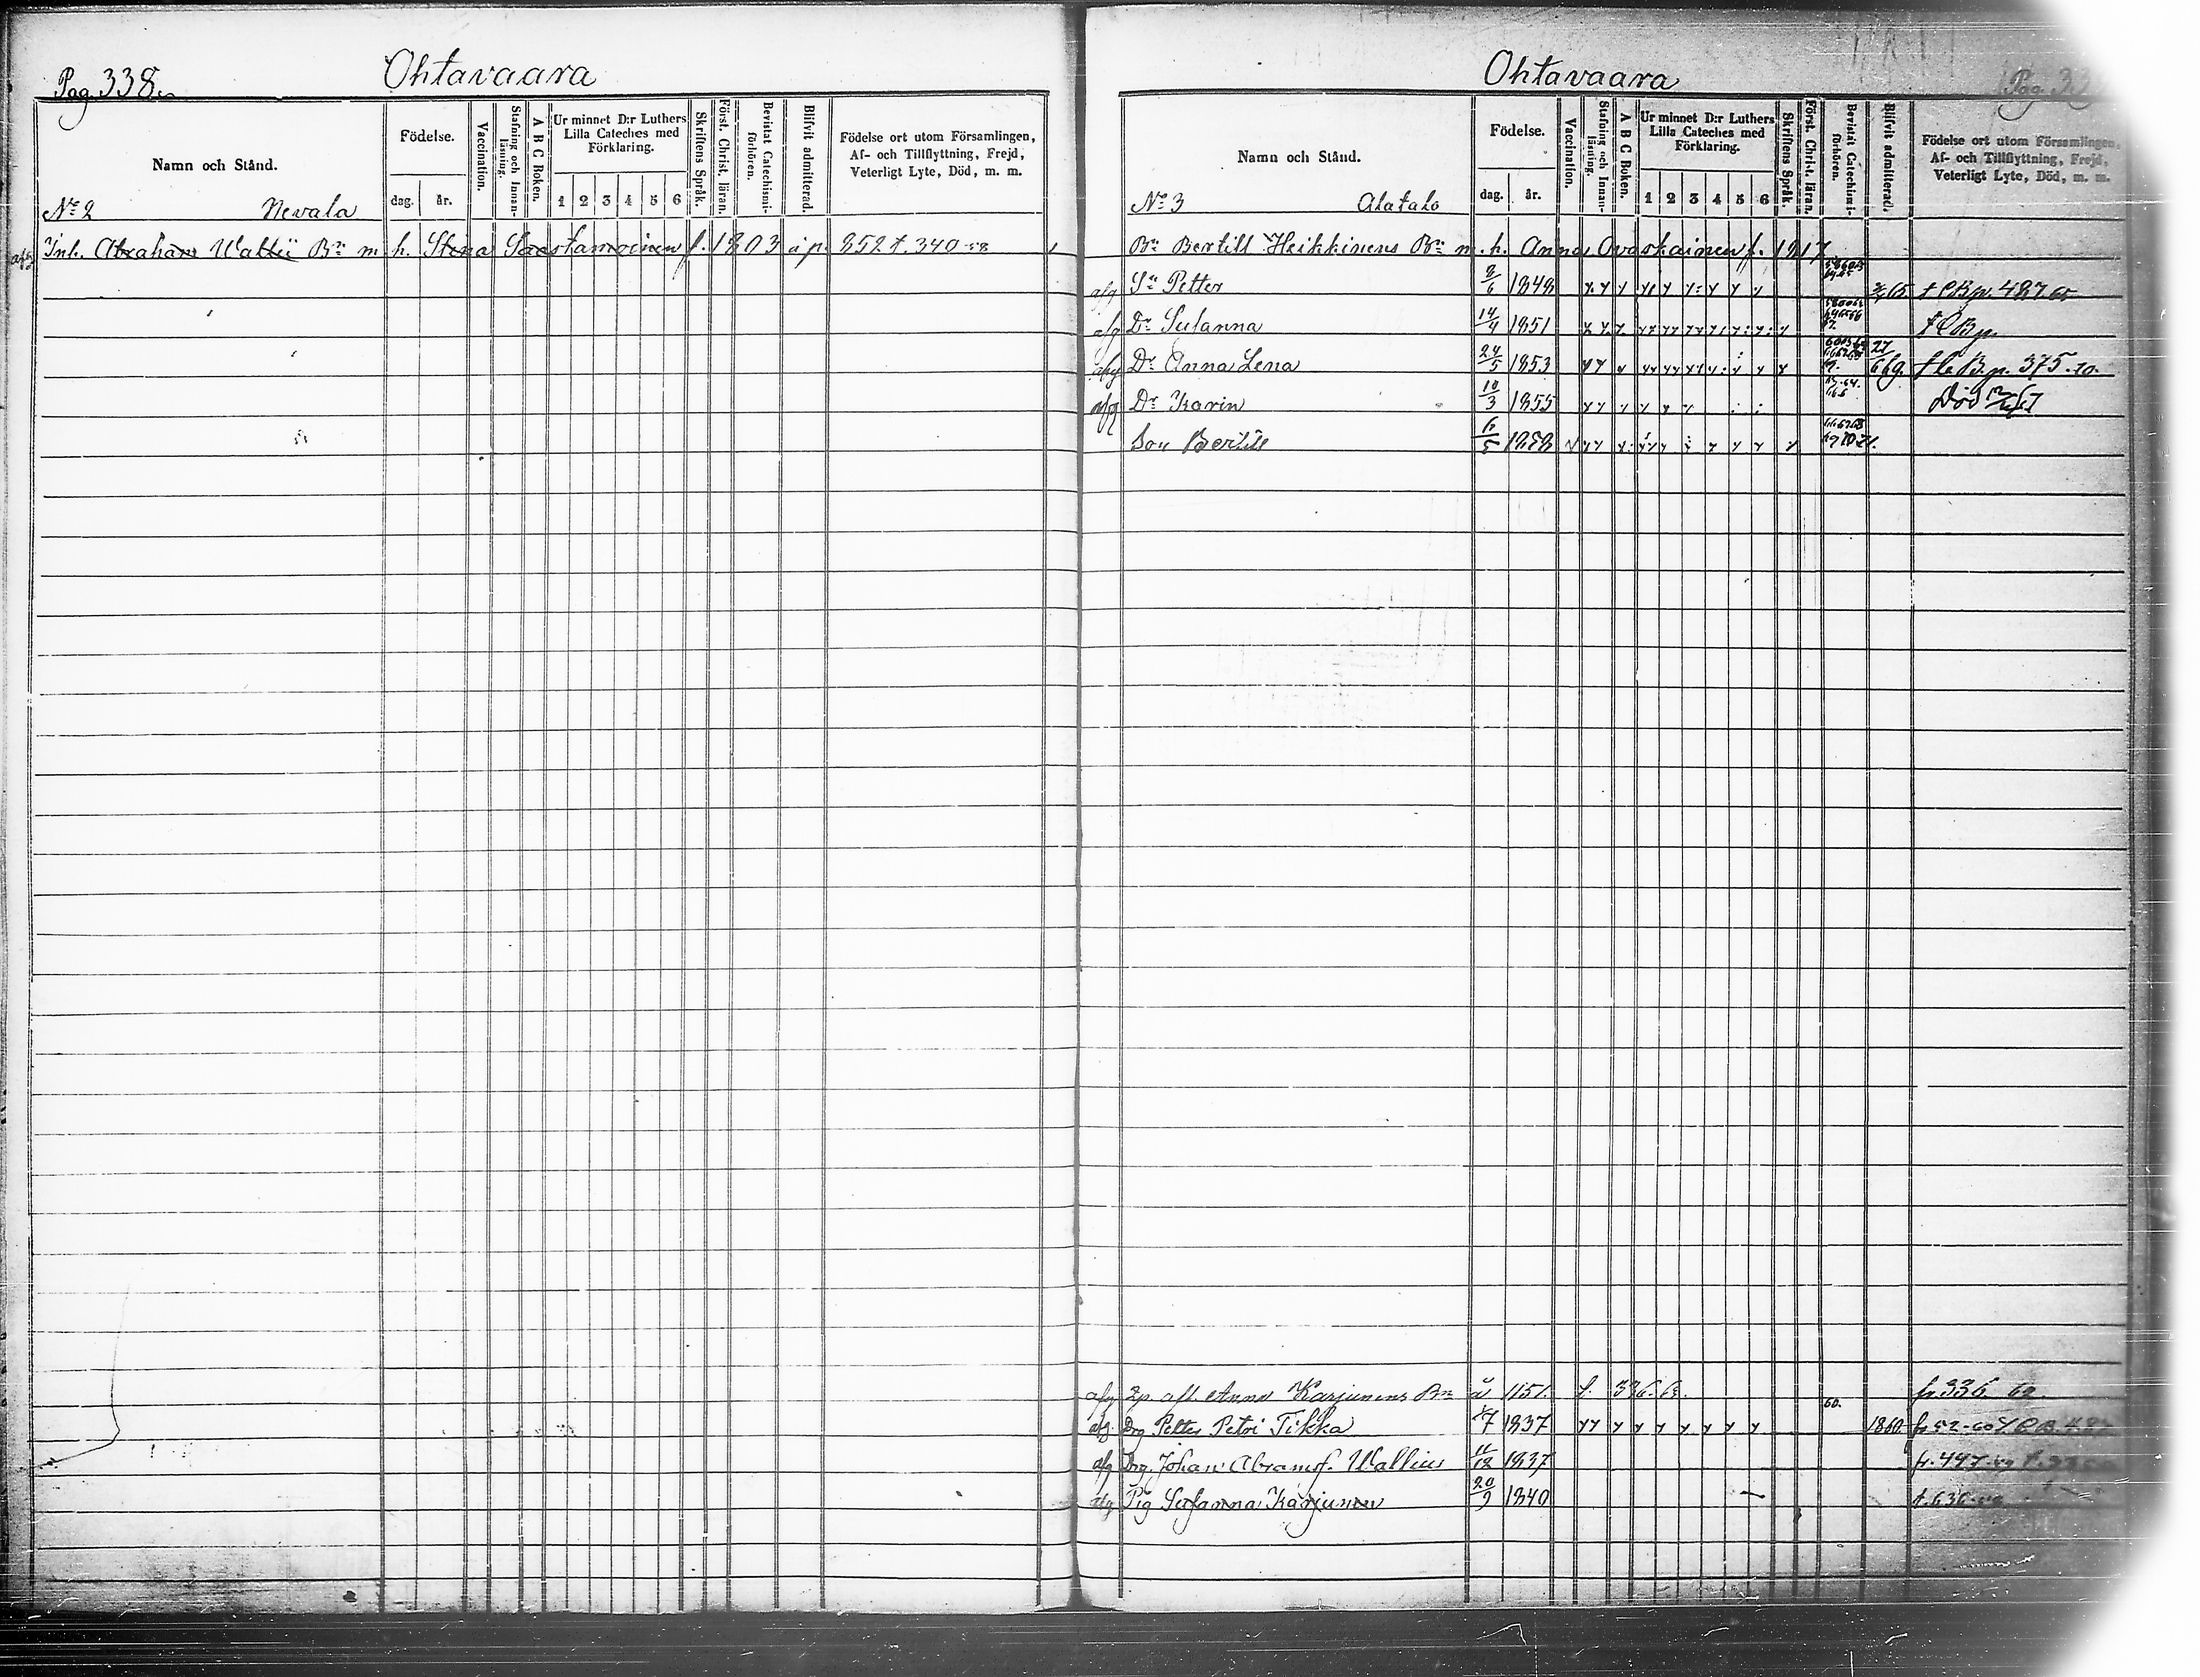 Pag. 338.
Ohtavaara
Namn och Stånd.
Födelse.
dag.
år.
Vaccination.
Stafning och Innan-läsning.
A B C Boken.
Ur minnet D:r Luthers
Lilla Cateches med
Förklaring.
1 2 3 4 5 6
Skriftens Språk.
Först. Christ. läran.
Bevistat Catechismi-förhören.
Blifvit admitterad.
Födelse ort utom Församlingen,
Af- och Tillflyttning, Frejd,
Veterligt Lyte, Död, m. m.
No 2 Nevala
Inh. Abraham Wallii Br m h. Stina Saastamoinen f. 1803 å p. 852 t. 340 58
Ohtavaara
Pag.
Namn och Stånd.
Födelse.
dag.
år.
Vaccination.
Stafning och Innan-läsning.
A B C Boken.
Ur minnet D:r Luthers
Lilla Cateches med
Förklaring.
1 2 3 4 5 6
Skriftens Språk.
Först. Christ. läran.
Bevistat Catechismi-förhören.
Blifvit admitterad.
Födelse ort utom Församlingen,
Af- och Tillflyttning, Frejd,
Veterligt Lyte, Död, m. m.
No 3 Alatalo
Br Bertill Heikkinens Br m. h. Anna Ovaskainen f. 1817
afg Sn Petter 8/6 1848 65. t CB p. 487 65
afg Dr Susanna 14/4 1851 t CB p.
afg Dr Anna Lena 24/5 1853 27/6 69. t CB p. 375. 70.
afg Dr Karin 10/3 1855 Död
Son Bertil 6/5 1858
afg Anna Karjunens 336. fr 336
afg. Drg Petter Petri Tikka 1837 1860. fr 52-60
afg Drg. Johan Abramsf. Wallius 11/12 1837 fr. 497
afg Pig Susanna Karjunen 20/9 1840 t. 636